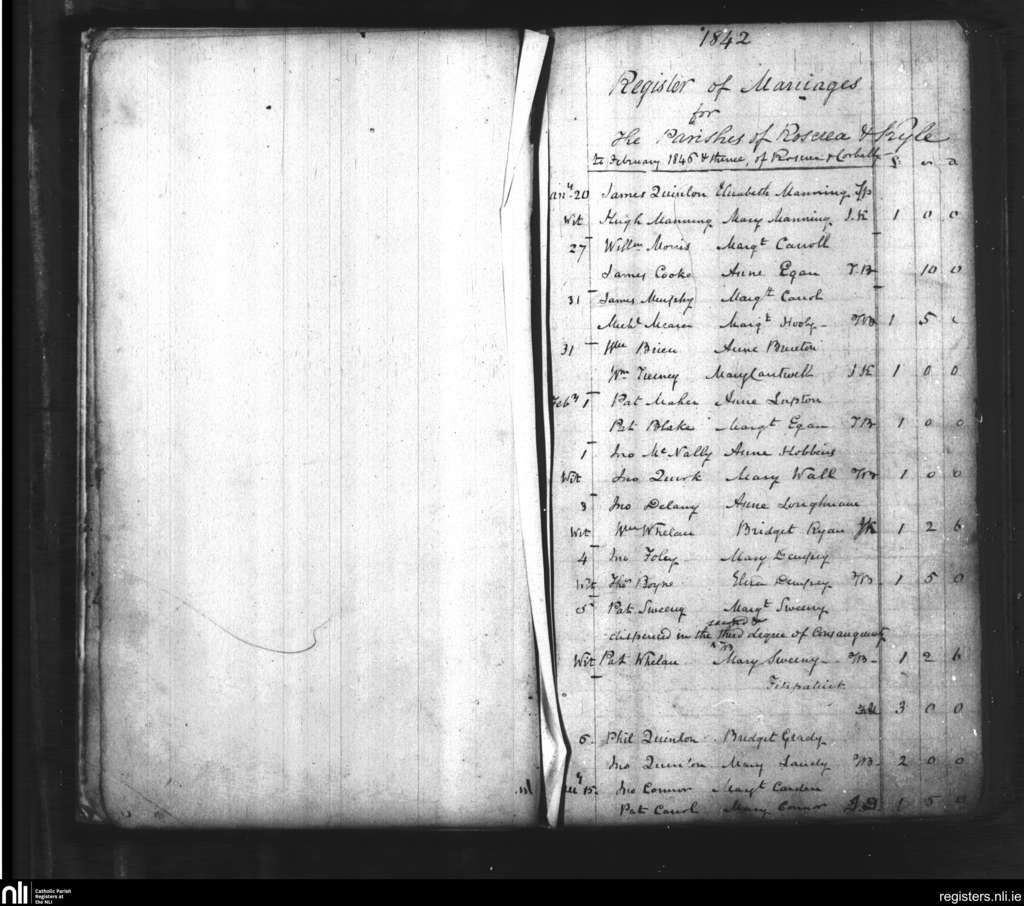 1842
Register of Marriages
for
The Parishes of Roscrea & Kyle
to February 1846 & thence, of Roscrea & Corbally £ s d
Jany 20 James Quinlon Elizabeth Manning
Wit Hugh Manning Mary Manning J.K 1 0 0
27 Willm Morris Margt Carroll
James Cooke Anne Egan T.B 10 0
31 James Murphy Margt Carrol
Michl Meara Margt 1 5
31 Wm Brien Anne
Wm Tierney Mary Cantwell J K 1 0 0
Feby 1 Pat Maher Anne
Pat Blake Margt Egan T.B 1 0 0
1 Jno McNally Anne Hobbins
Wit Jno Quirk Mary Wall 1 0 0
3 Jno Delany Anne Loughnane
Wit Wm Whelan Bridget Ryan JK 1 2 6
4 Jno Foley Mary Dempsy
Wit Thos Boyne Eliza Dempsey 1 5 0
5 Pat Sweeny Margt Sweeny
second &
dispensed in the third degree of consanguinity
Wit Pat Whelan Mary Sweeny 1 2 6
Fitzpatrick
3 0 0
6 Phil Quinlon Bridget Grady
Jno Quinlon Mary 2 0 0
15 Jno Connor Margt Carden
Pat Carrol Mary Connor J.D 1 5 0
nli Catholic Parish
Registers at
the NLI
registers.nli.ie